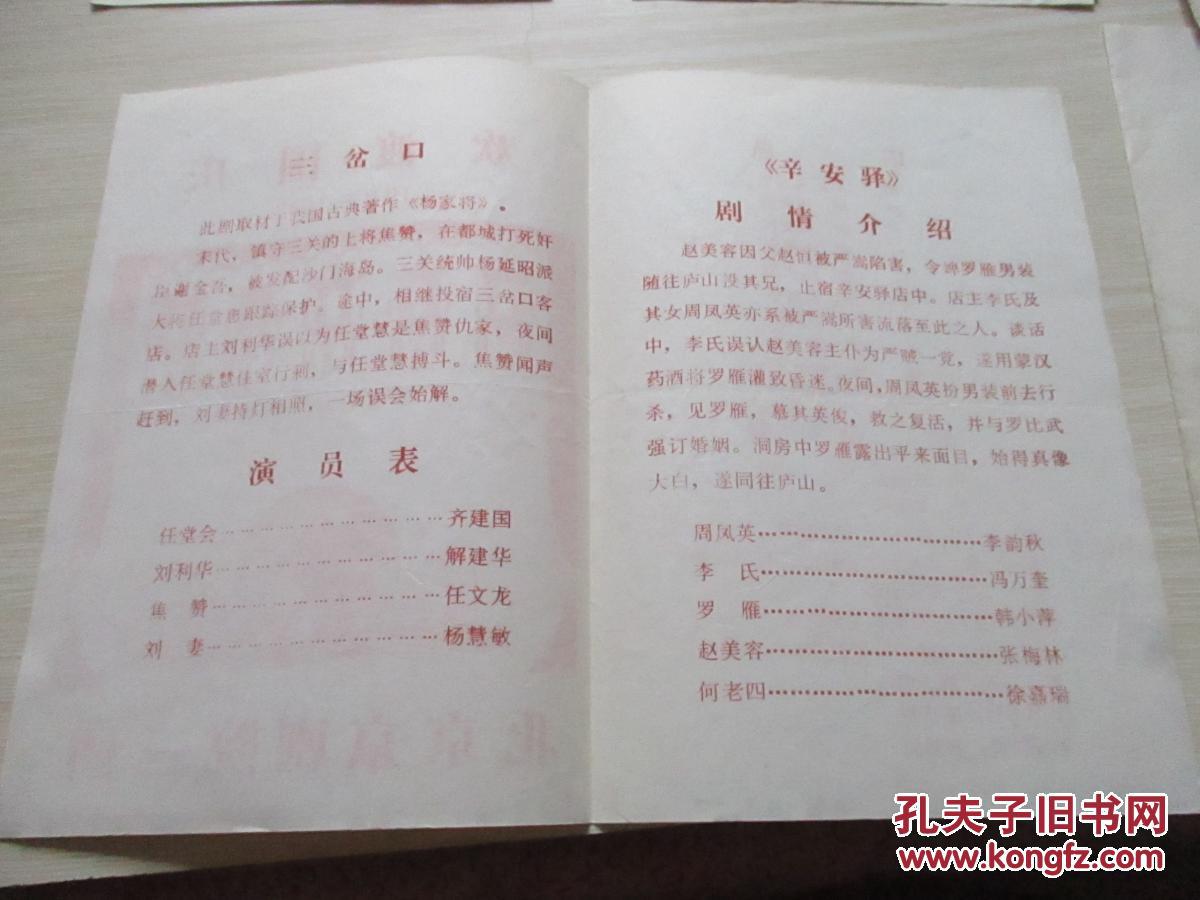 三岔口
此剧取材于我国古典著作《杨家将》。
宋代，镇守三关的上将焦赞，在都城打死奸
臣谢金吾，被发配沙门海岛。三关统帅杨延昭派
大将任堂惠跟踪保护。途中，相继投宿三岔口客
店。店主刘利华误以为任堂慧是焦赞仇家，夜间
潜入任堂慧住室行刺，与任堂慧搏斗。焦赞闻声
赶到，刘妻持灯相照，一场误会始解。
演员表
任堂会……………………齐建国
刘利华……………………解建华
焦赞……………………任文龙
刘妻……………………杨慧敏
《辛安驿》
剧情介绍
赵美容因父赵恒被严嵩陷害，令婢罗雁男装
随往庐山没其兄，止宿辛安驿店中。店主李氏及
其女周凤英亦系被严嵩所害流落至此之人。谈话
中，李氏误认赵美容主仆为严贼一党，遂用蒙汉
药酒将罗雁灌致昏迷。夜间，周凤英扮男装前去行
杀，见罗雁，慕其英俊，救之复活，并与罗比武
强订婚姻。洞房中罗雁露出平来面目，始得真像
大白，遂同往庐山。
周凤英……………………李韵秋
李氏……………………冯万奎
罗雁……………………韩小萍
赵美容……………………张梅林
何老四……………………徐嘉瑞
孔夫子旧书网
www.kongfz.com